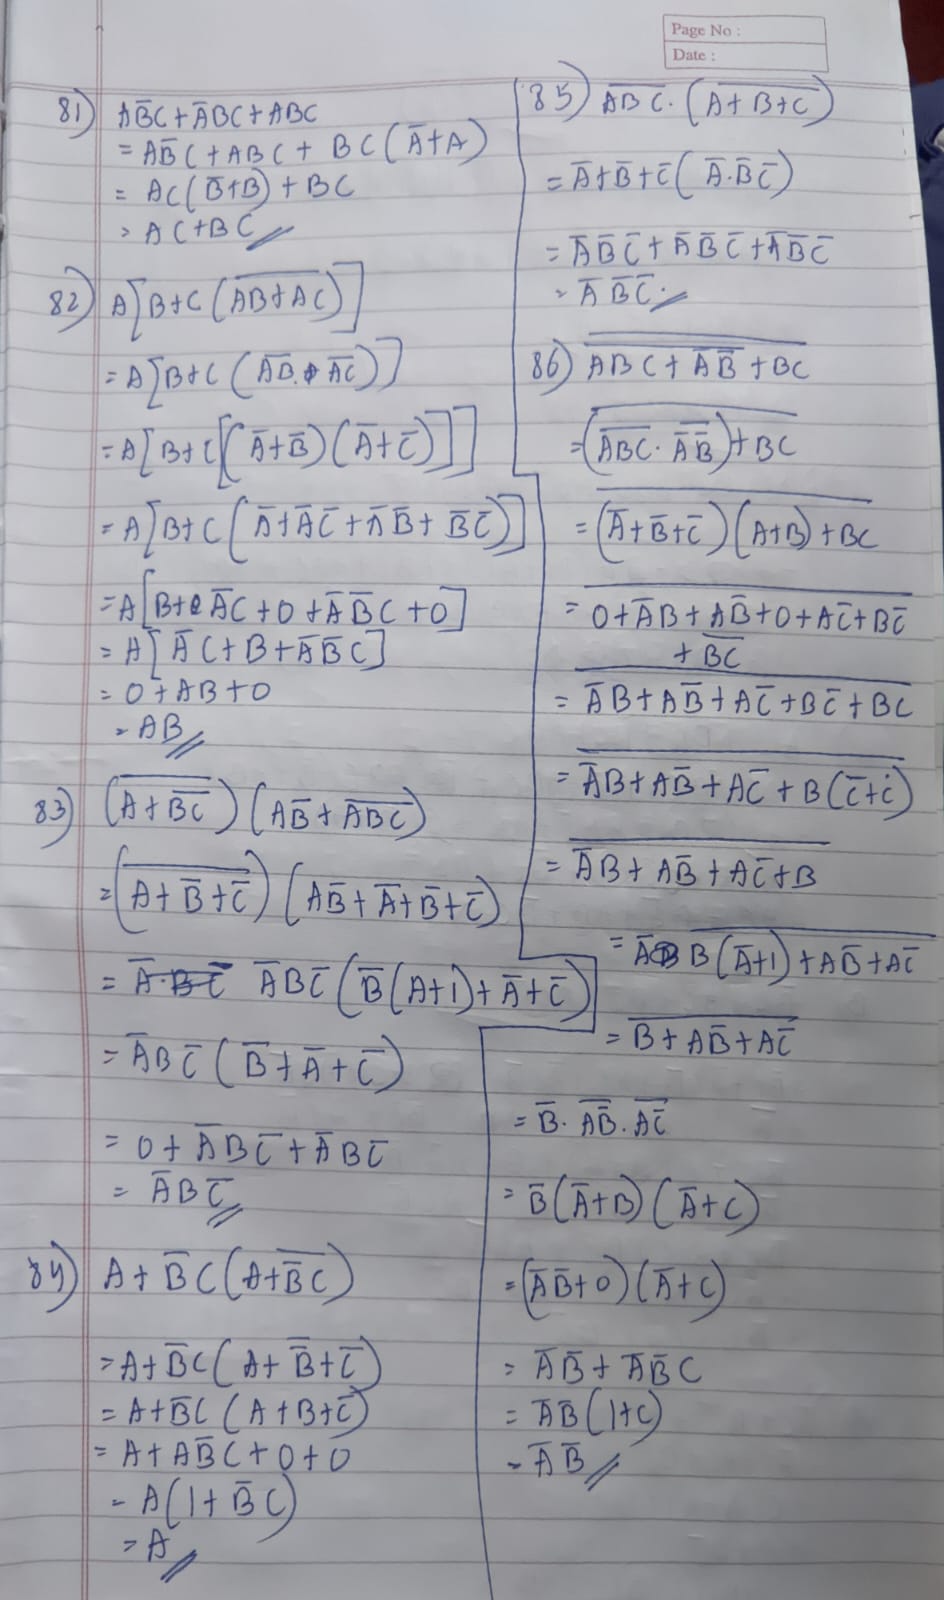 Page No :
Date :
81) AB̅C + A̅BC + ABC
= AB̅C + ABC + BC(A̅+A)
= AC(B̅+B) + BC
= AC+BC
82) A[B+C(\overline{AB+AC})]
= A[B+C(\overline{AB}.\overline{AC})]
= A[B+C[(A̅+B̅)(A̅+C̅)]]
= A[B+C(A̅+A̅C̅+A̅B̅+B̅C̅)]
= A[B+A̅C+0+A̅B̅C+0]
= A[A̅C+B+A̅B̅C]
= 0+AB+0
= AB
83) (\overline{A+\overline{BC}})(AB̅+\overline{ABC})
= (\overline{A+B̅+C̅})(AB̅+A̅+B̅+C̅)
= A̅BC̅(B̅(A+1)+A̅+C̅)
= A̅BC̅(B̅+A̅+C̅)
= 0+A̅BC̅+A̅BC̅
= A̅BC̅
84) A+B̅C(A+\overline{B̅C})
= A+B̅C(A+\overline{B̅}+C̅)
= A+B̅C(A+B+C̅)
= A+AB̅C+0+0
= A(1+B̅C)
= A
85) \overline{ABC}.(\overline{A+B+C})
= A̅+B̅+C̅(A̅.B̅C̅)
= A̅B̅C̅+A̅B̅C̅+A̅B̅C̅
= A̅B̅C̅.
86) \overline{\overline{ABC+A̅B̅}+BC}
= \overline{(\overline{ABC}.\overline{A̅B̅})+BC}
= \overline{(A̅+B̅+C̅)(A+B)+BC}
= \overline{0+A̅B+AB̅+0+AC̅+BC̅
+BC}
= \overline{A̅B+AB̅+AC̅+BC̅+BC}
= \overline{A̅B+AB̅+AC̅+B(C̅+C)}
= \overline{A̅B+AB̅+AC̅+B}
= \overline{B(A̅+1)+AB̅+AC̅}
= \overline{B+AB̅+AC̅}
= B̅.\overline{AB̅}.\overline{AC̅}
= B̅(A̅+B)(A̅+C)
= (A̅B̅+0)(A̅+C)
= A̅B̅+A̅B̅C
= A̅B̅(1+C)
= A̅B̅